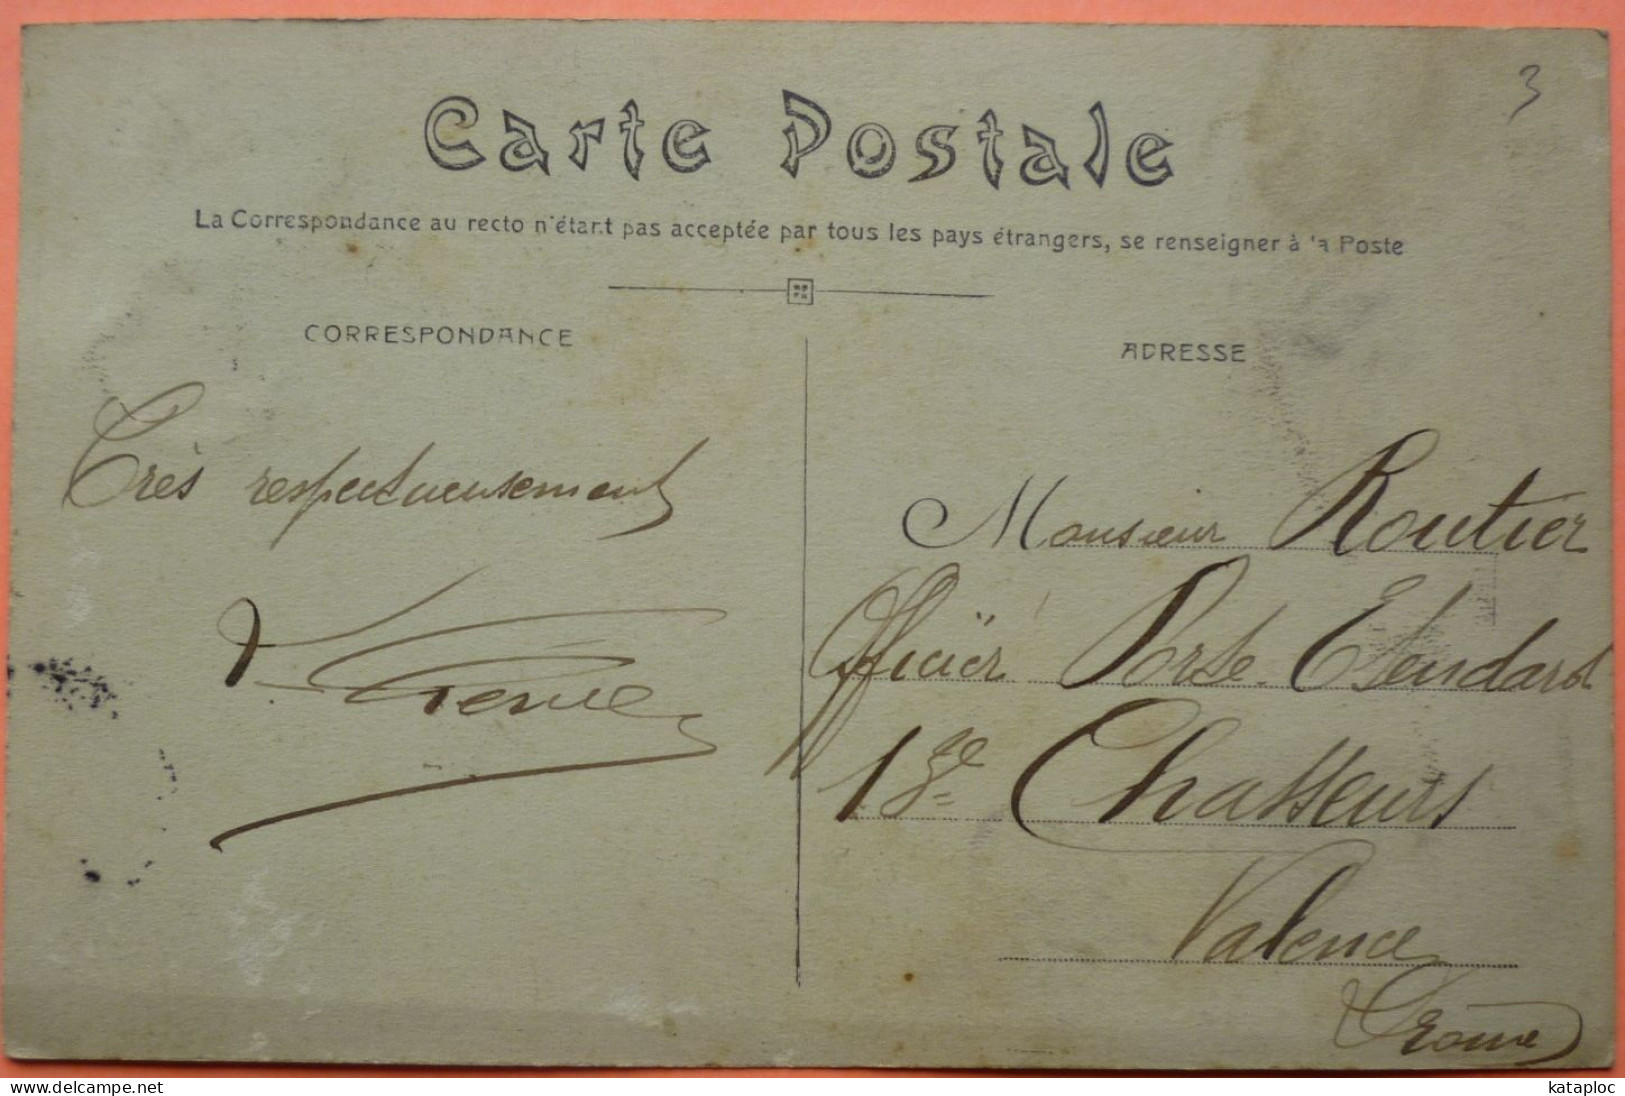 3
Carte Postale
La Correspondance au recto n'étant pas acceptée par tous les pays étrangers, se renseigner à la Poste
CORRESPONDANCE
Très respectueusement
ADRESSE
Monsieur Routier
Officier Porte Etendard
13e Chasseurs
Valence
Drôme
kataploc
delcampe.net